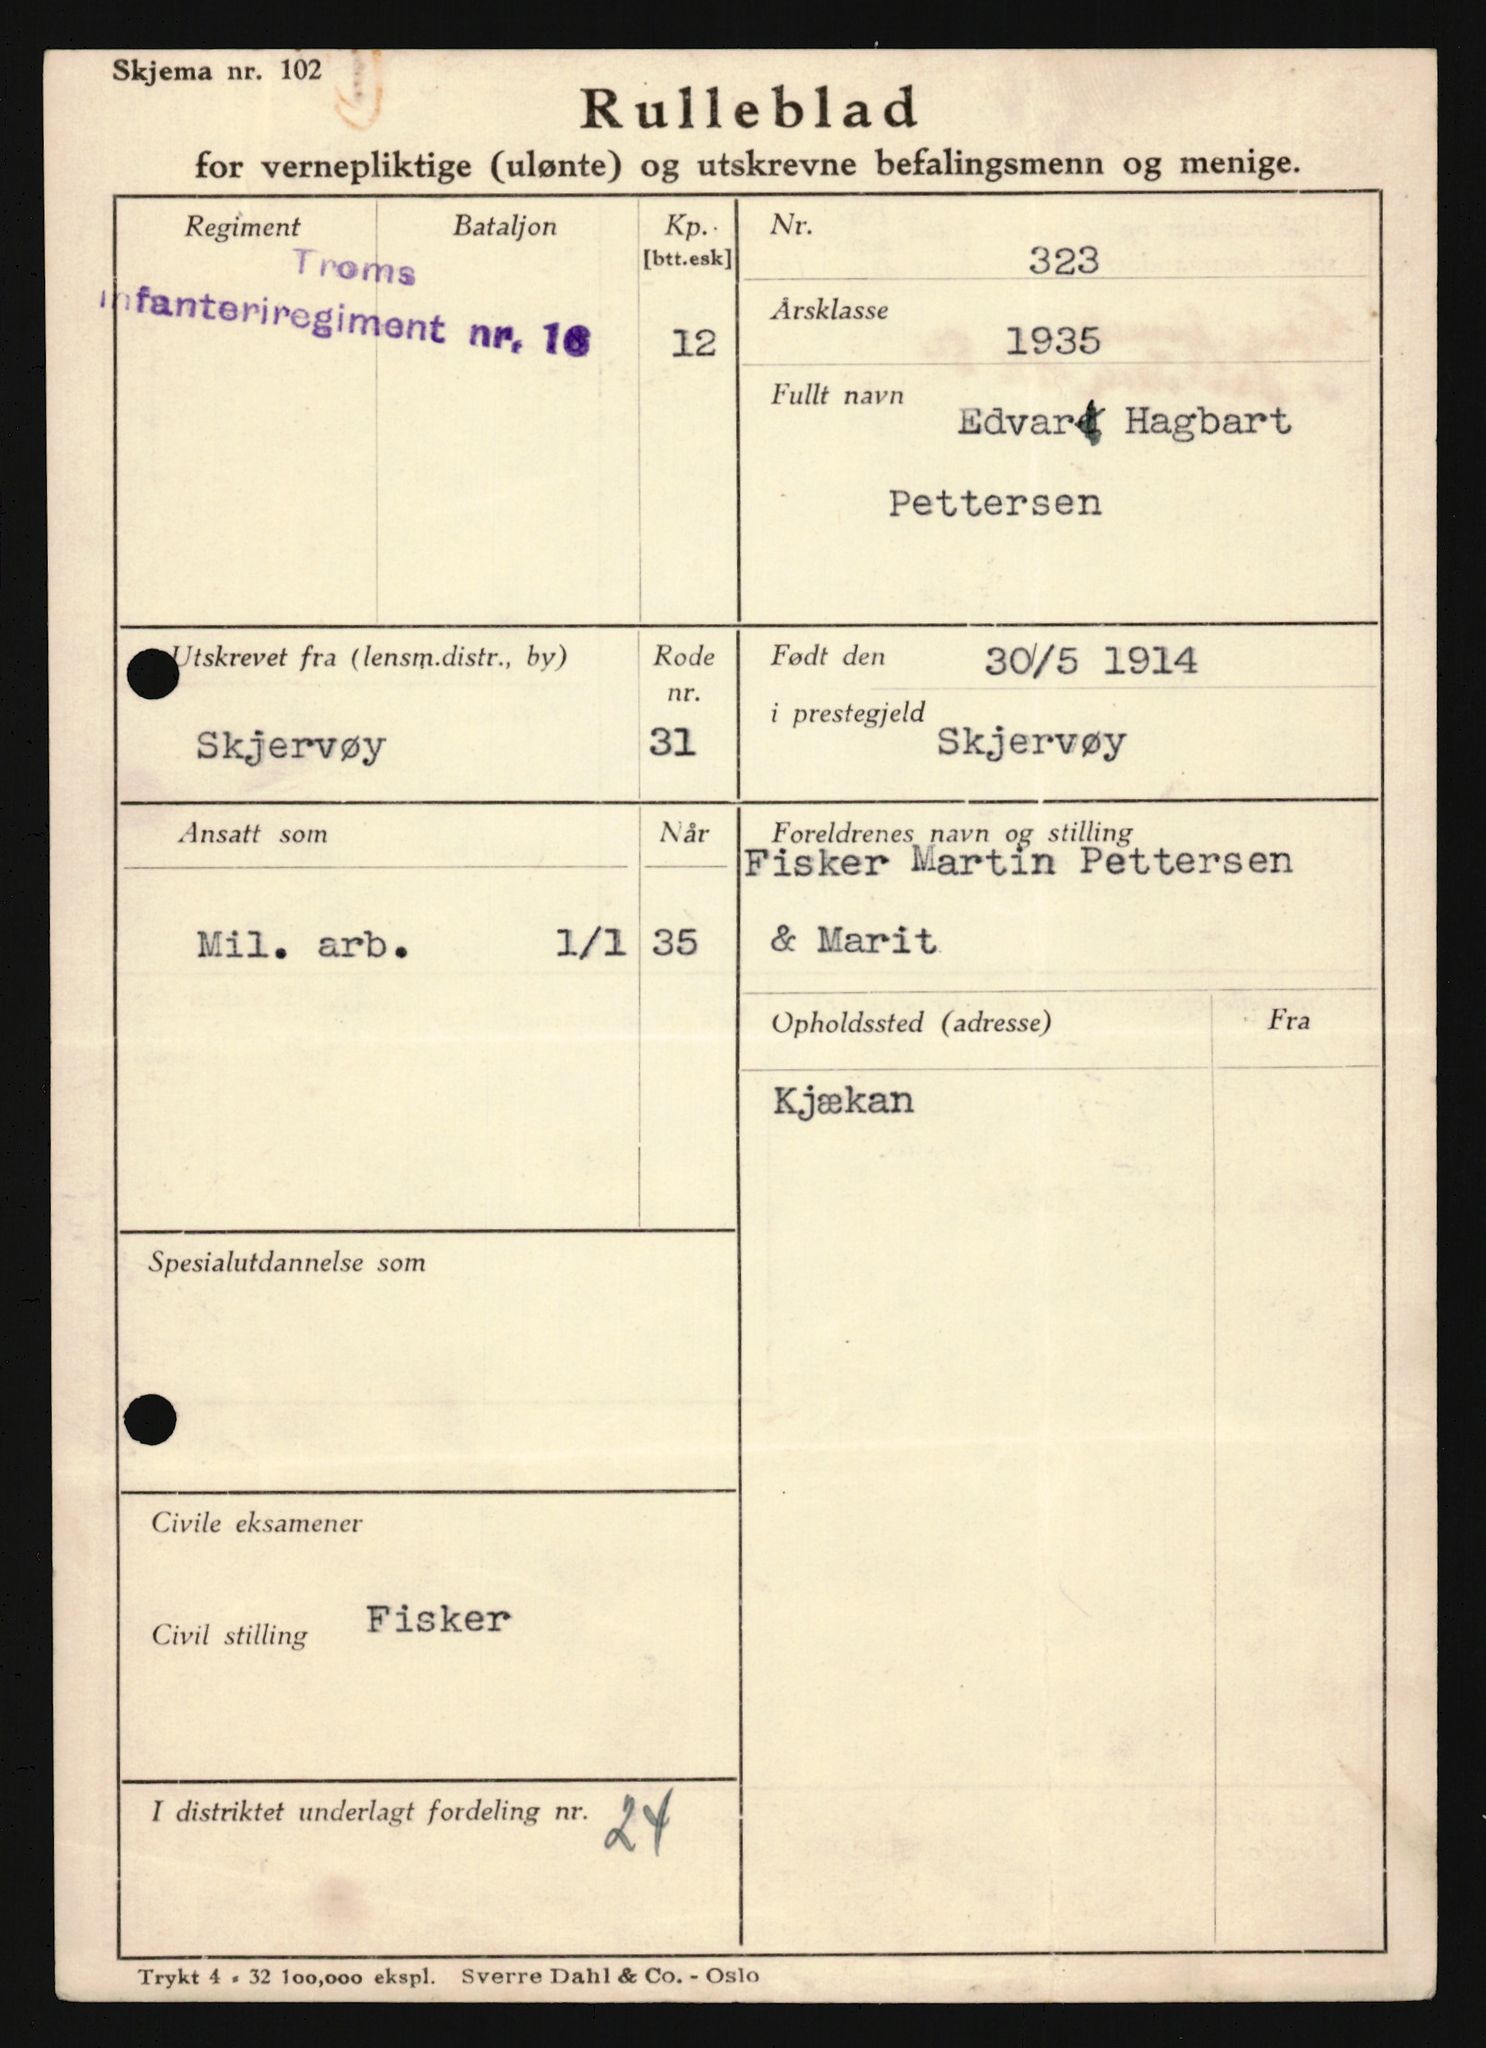 Skjema nr. 102
Rulleblad
for vernepliktige (ulønte) og utskrevne befalingsmenn og menige.
Regiment
Bataljon
Kp.
[btt.esk]
Troms
infanteriregiment nr. 16
12
Nr.
323
Årsklasse
1935
Fullt navn
Edvart Hagbart
Pettersen
Utskrevet fra (lensm.distr., by)
Rode
nr.
Skjervøy
31
Født den
30/5 1914
i prestegjeld
Skjervøy
Ansatt som
Når
Mil. arb. 1/1 35
Foreldrenes navn og stilling
Fisker Martin Pettersen
& Marit
Opholdssted (adresse)
Fra
Kjækan
Spesialutdannelse som
Civile eksamener
Civil stilling
Fisker
I distriktet underlagt fordeling nr.
24
Trykt 4 - 32 100,000 ekspl. Sverre Dahl & Co. - Oslo